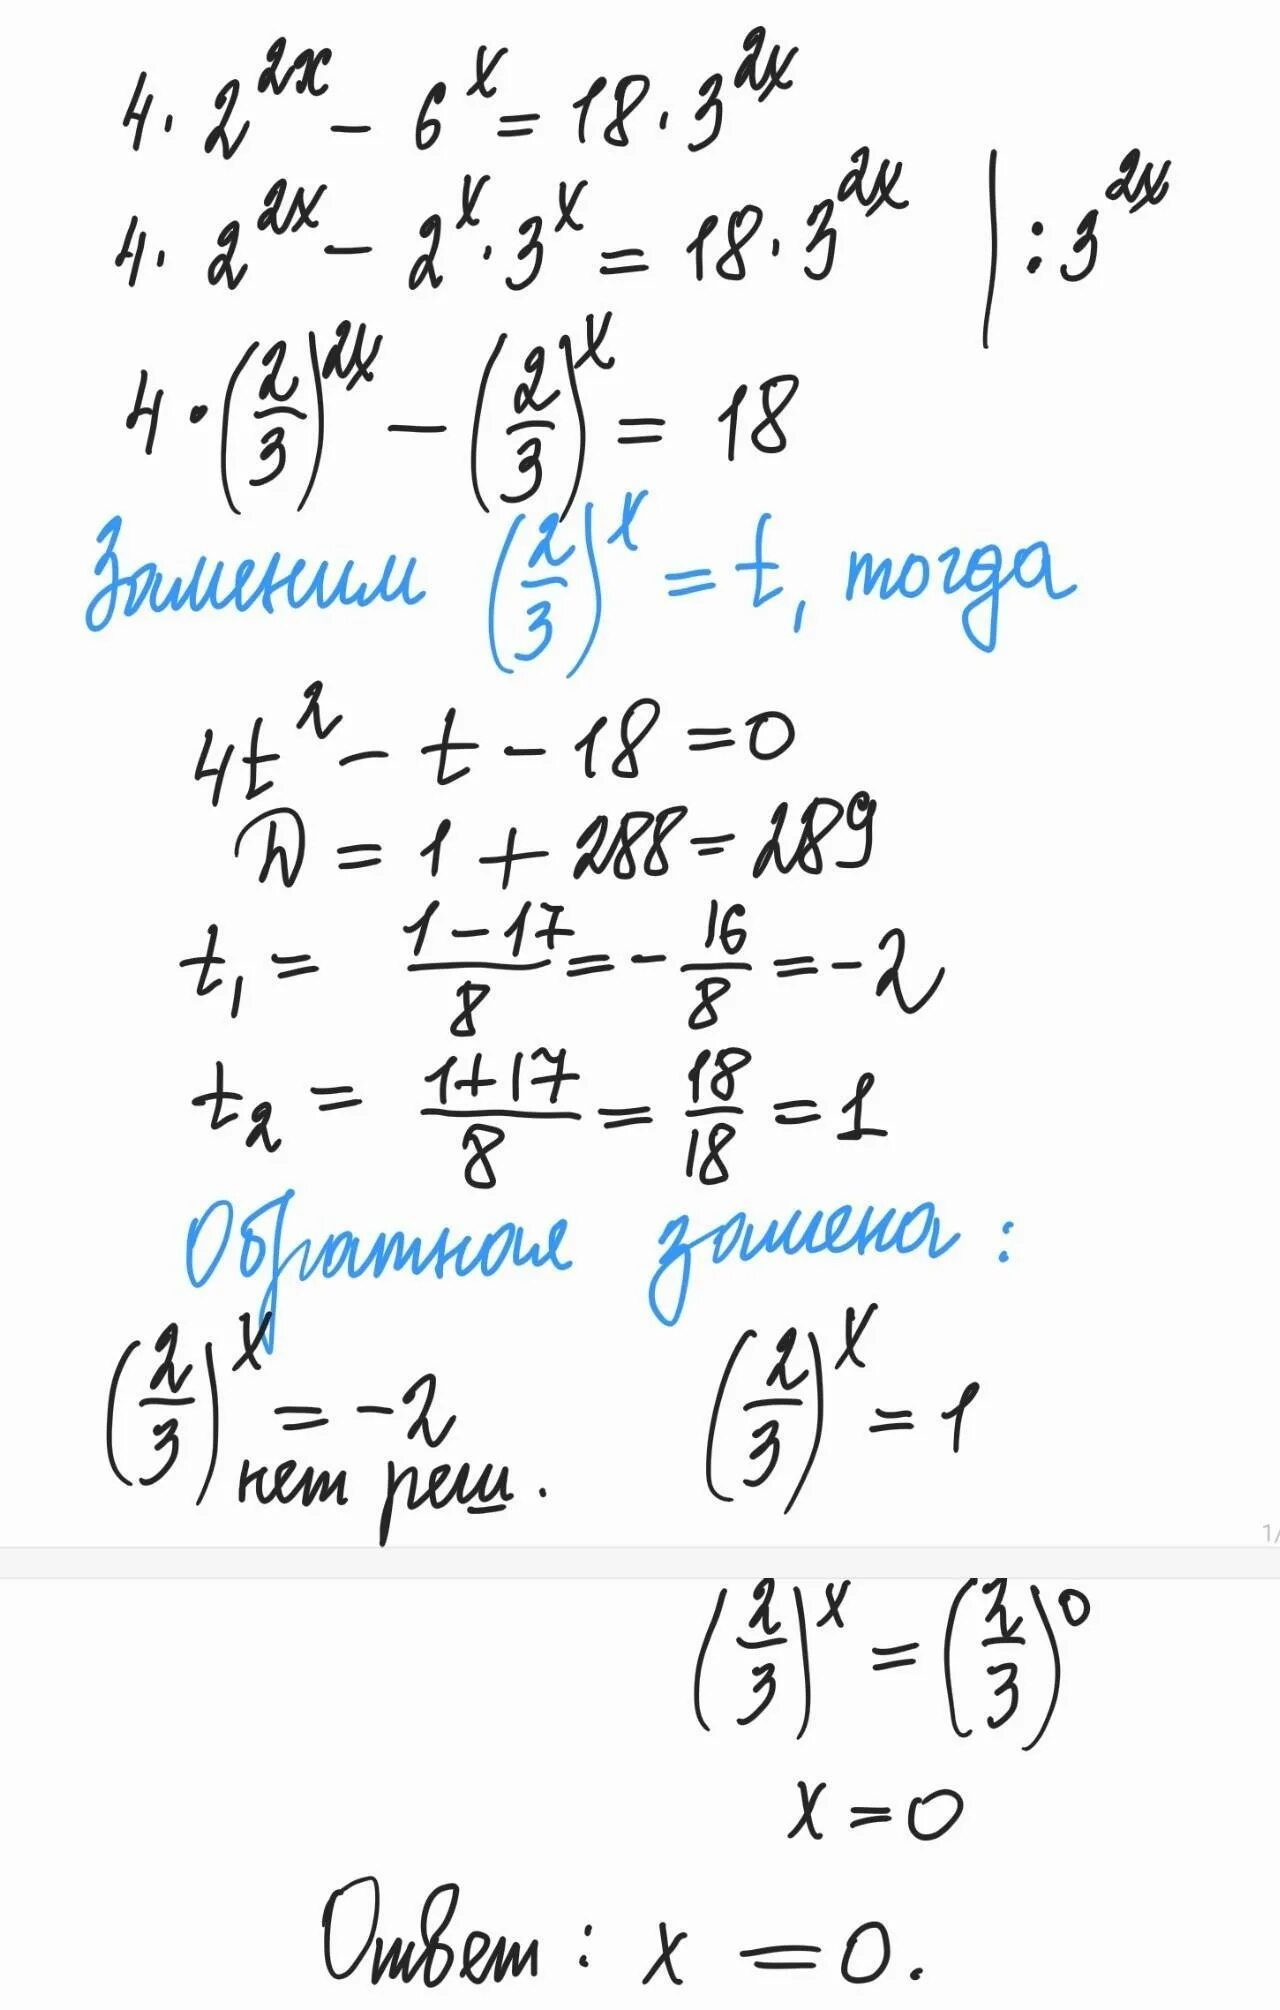 4 · 2^{2x} - 6^x = 18 · 3^{2x}
4 · 2^{2x} - 2^x · 3^x = 18 · 3^{2x} | : 3^{2x}
4 · (2/3)^{2x} - (2/3)^x = 18
Заменим (2/3)^x = t, тогда
4t^2 - t - 18 = 0
D = 1 + 288 = 289
t_1 = (1-17)/8 = - 16/8 = -2
t_2 = (1+17)/8 = 18/18 = 1
Обратная замена:
(2/3)^x = -2 (2/3)^x = 1
нет реш.
1/
(2/3)^x = (2/3)^0
x = 0
Ответ: x = 0.